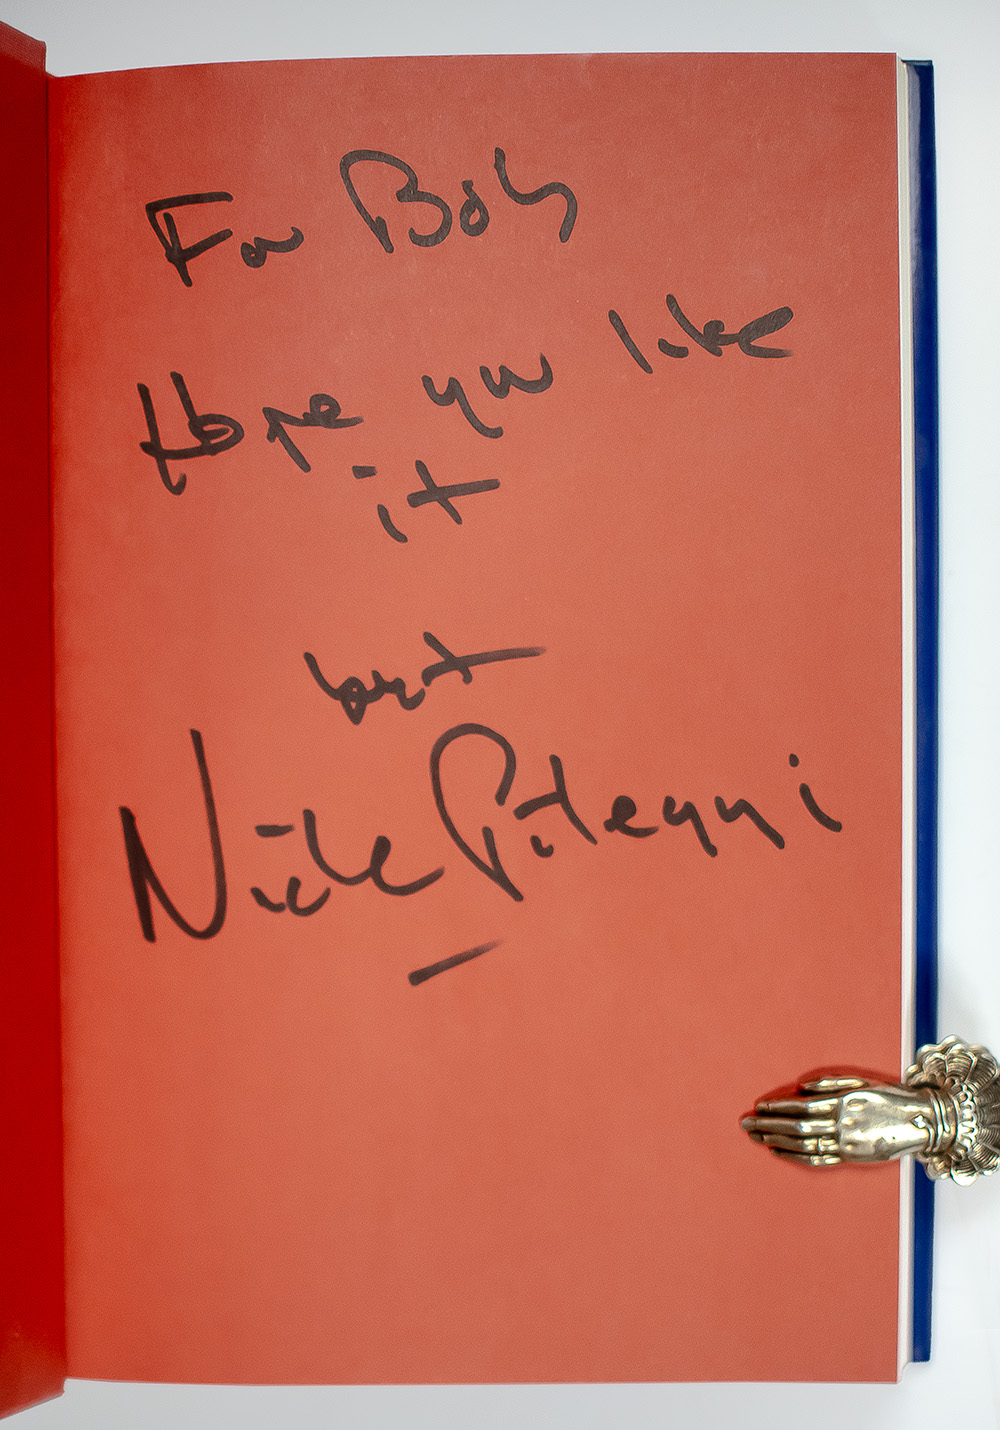 For Bob
Hope you like
it
best
Nick Pileggi